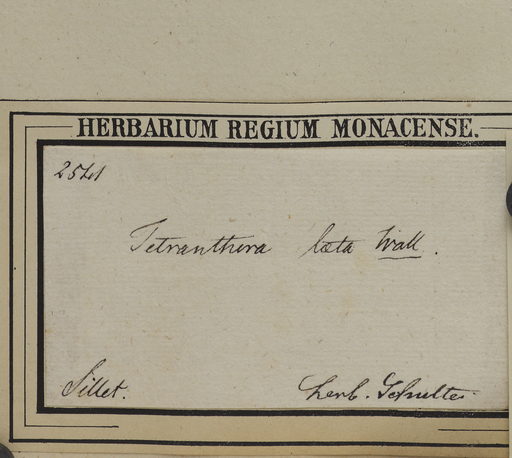 HERBARIUM REGIUM MONACENSE.
2541
Tetranthera læta Wall.
Sillet.
herb. Schultes